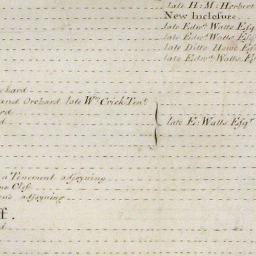 late H: M: Herbert
New Inclosure
late Edwd. Watts Esqr
late Edwd. Watts Esqr
late Ditto Howe Esqr
late Edwd. Watts Esqr
Orchard
and Orchard late Wm. Crick Tent.
late E: Watts Esqr.
a Tenement adjoyning
Close
adjoyning